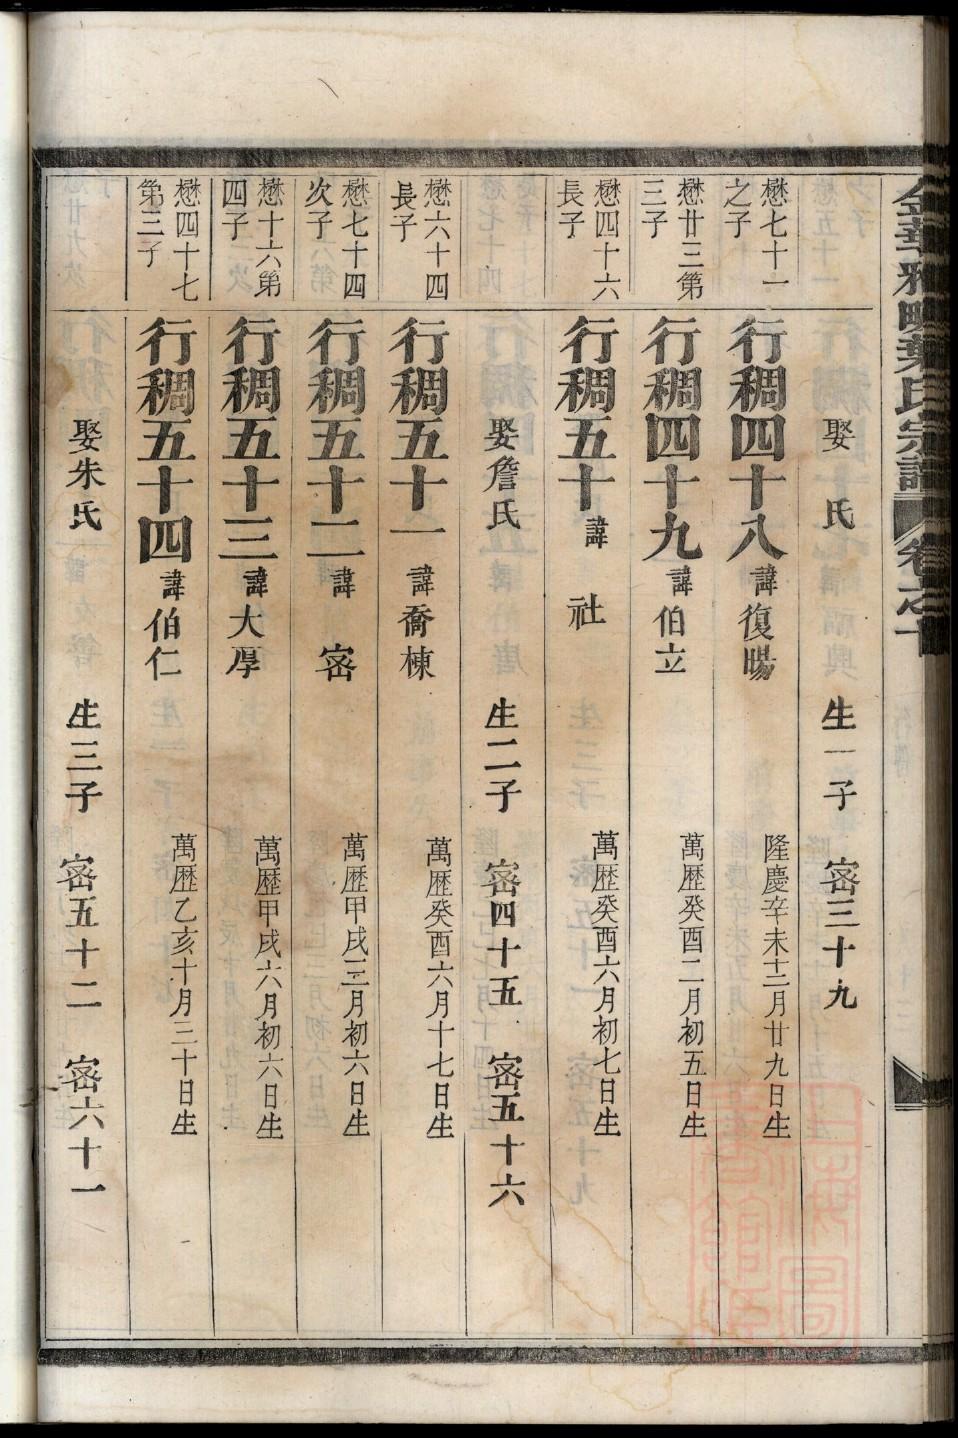 金華雅畈葉氏宗譜 卷之十
娶 氏 生一子 宻三十九
懋七十一
之子
行稠四十八 諱復暘 隆慶辛未十二月廿九日生
懋廿三第
三子
行稠四十九 諱伯立 萬歷癸酉二月初五日生
懋四十六
長子
行稠五十 諱社 萬歷癸酉六月初七日生
娶詹氏 生二子 宻四十五 宻五十六
懋六十四
長子
行稠五十一 諱喬棟 萬歷癸酉六月十七日生
懋七十四
次子
行稠五十二 諱宻 萬歷甲戌三月初六日生
懋十六第
四子
行稠五十三 諱大厚 萬歷甲戌六月初六日生
懋四十七
第三子
行稠五十四 諱伯仁 萬歷乙亥十月三十日生
娶朱氏 生三子 宻五十二 宻六十一